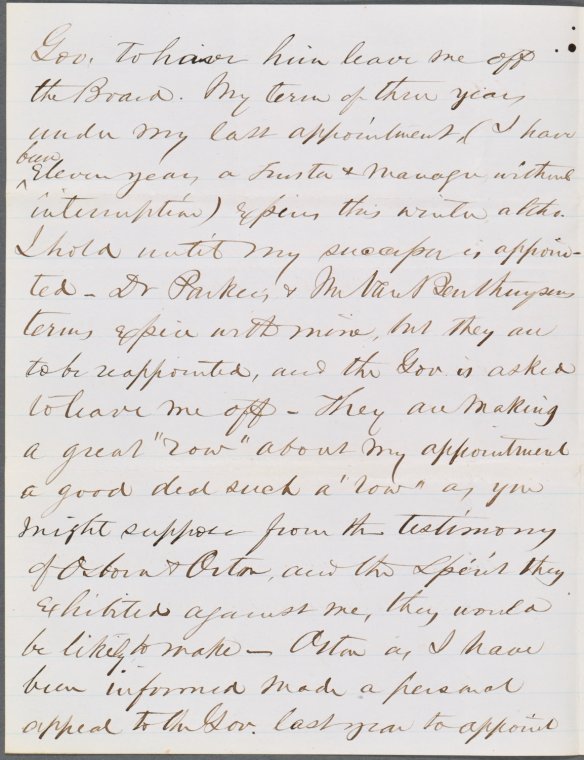 Gov. to have him leave me off
the Board. My term of three years
under my last appointment, (I have
been
Eleven years a Trustee & Manager without
interruption) Expires this winter altho.
I hold until my successor is appoin-
ted - Dr Parker, & Mr Van Benthuysens
terms expire with mine, but they are
to be reappointed, and the Gov. is asked
to leave me off - They are making
a great "row" about my appointment
a good deal such a "row" as you
might suppose from the testimony
of Osborn & Orton, and the Spirit they
Exhibited against me, they would
be likely to make - Orton as I have
been informed made a personal
appeal to the Gov. last year to appoint